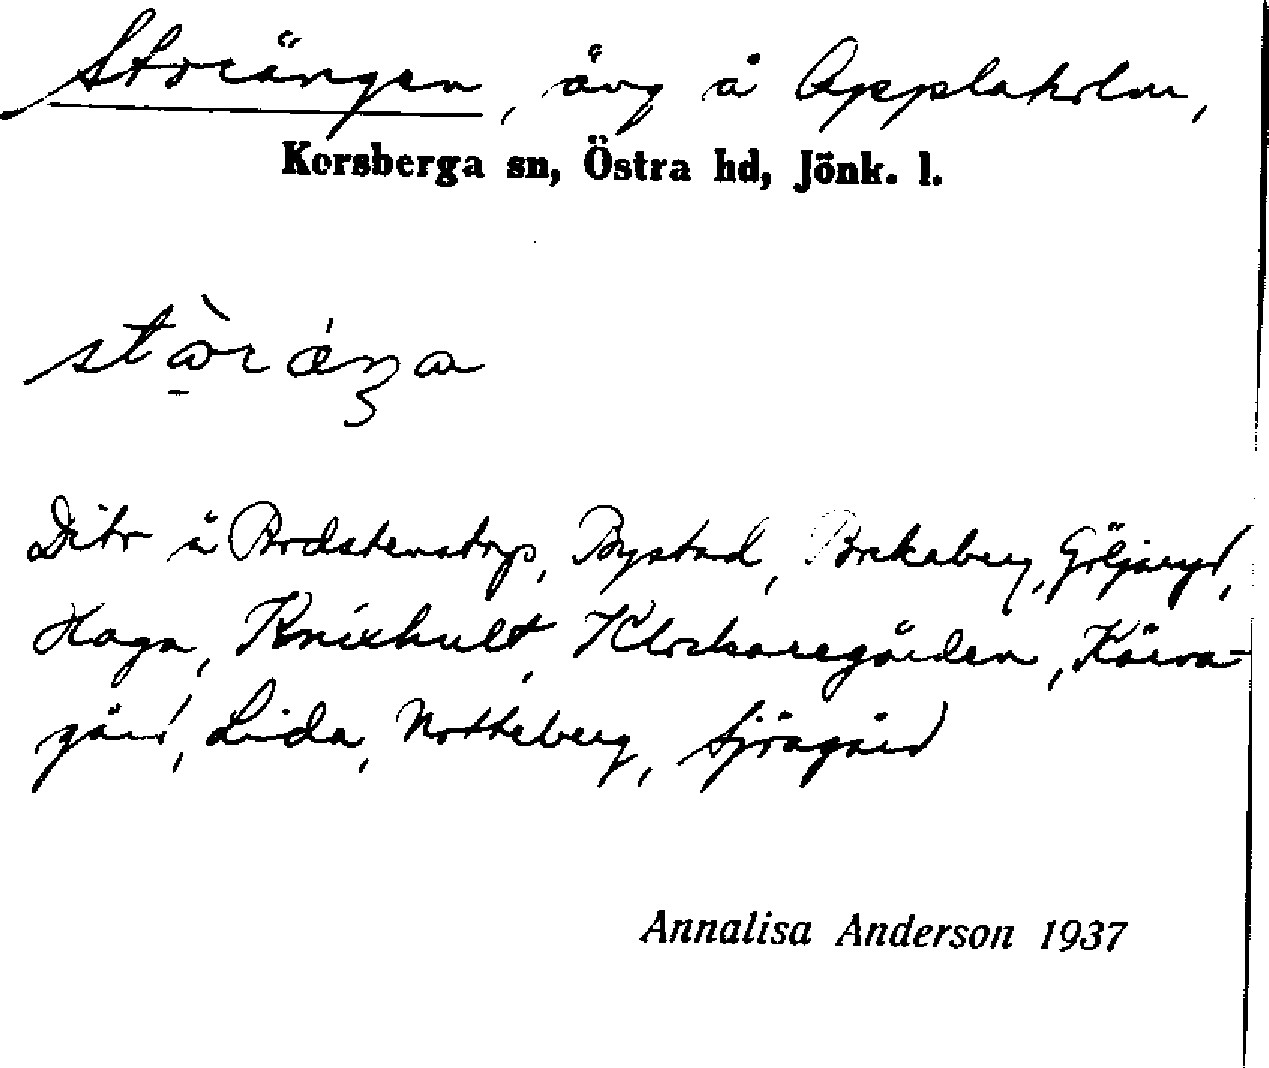 Storängen, äng å Applaholm,
Korsberga sn, Östra hd, Jönk. l.
Dito å Brostenstorp, Bystad, Brakeberg, Göljaryd,
Haga, Knixhult, Klockaregården, Kärra-
gård, Lida, Notteberg, Sjöagård
Annalisa Anderson 1937